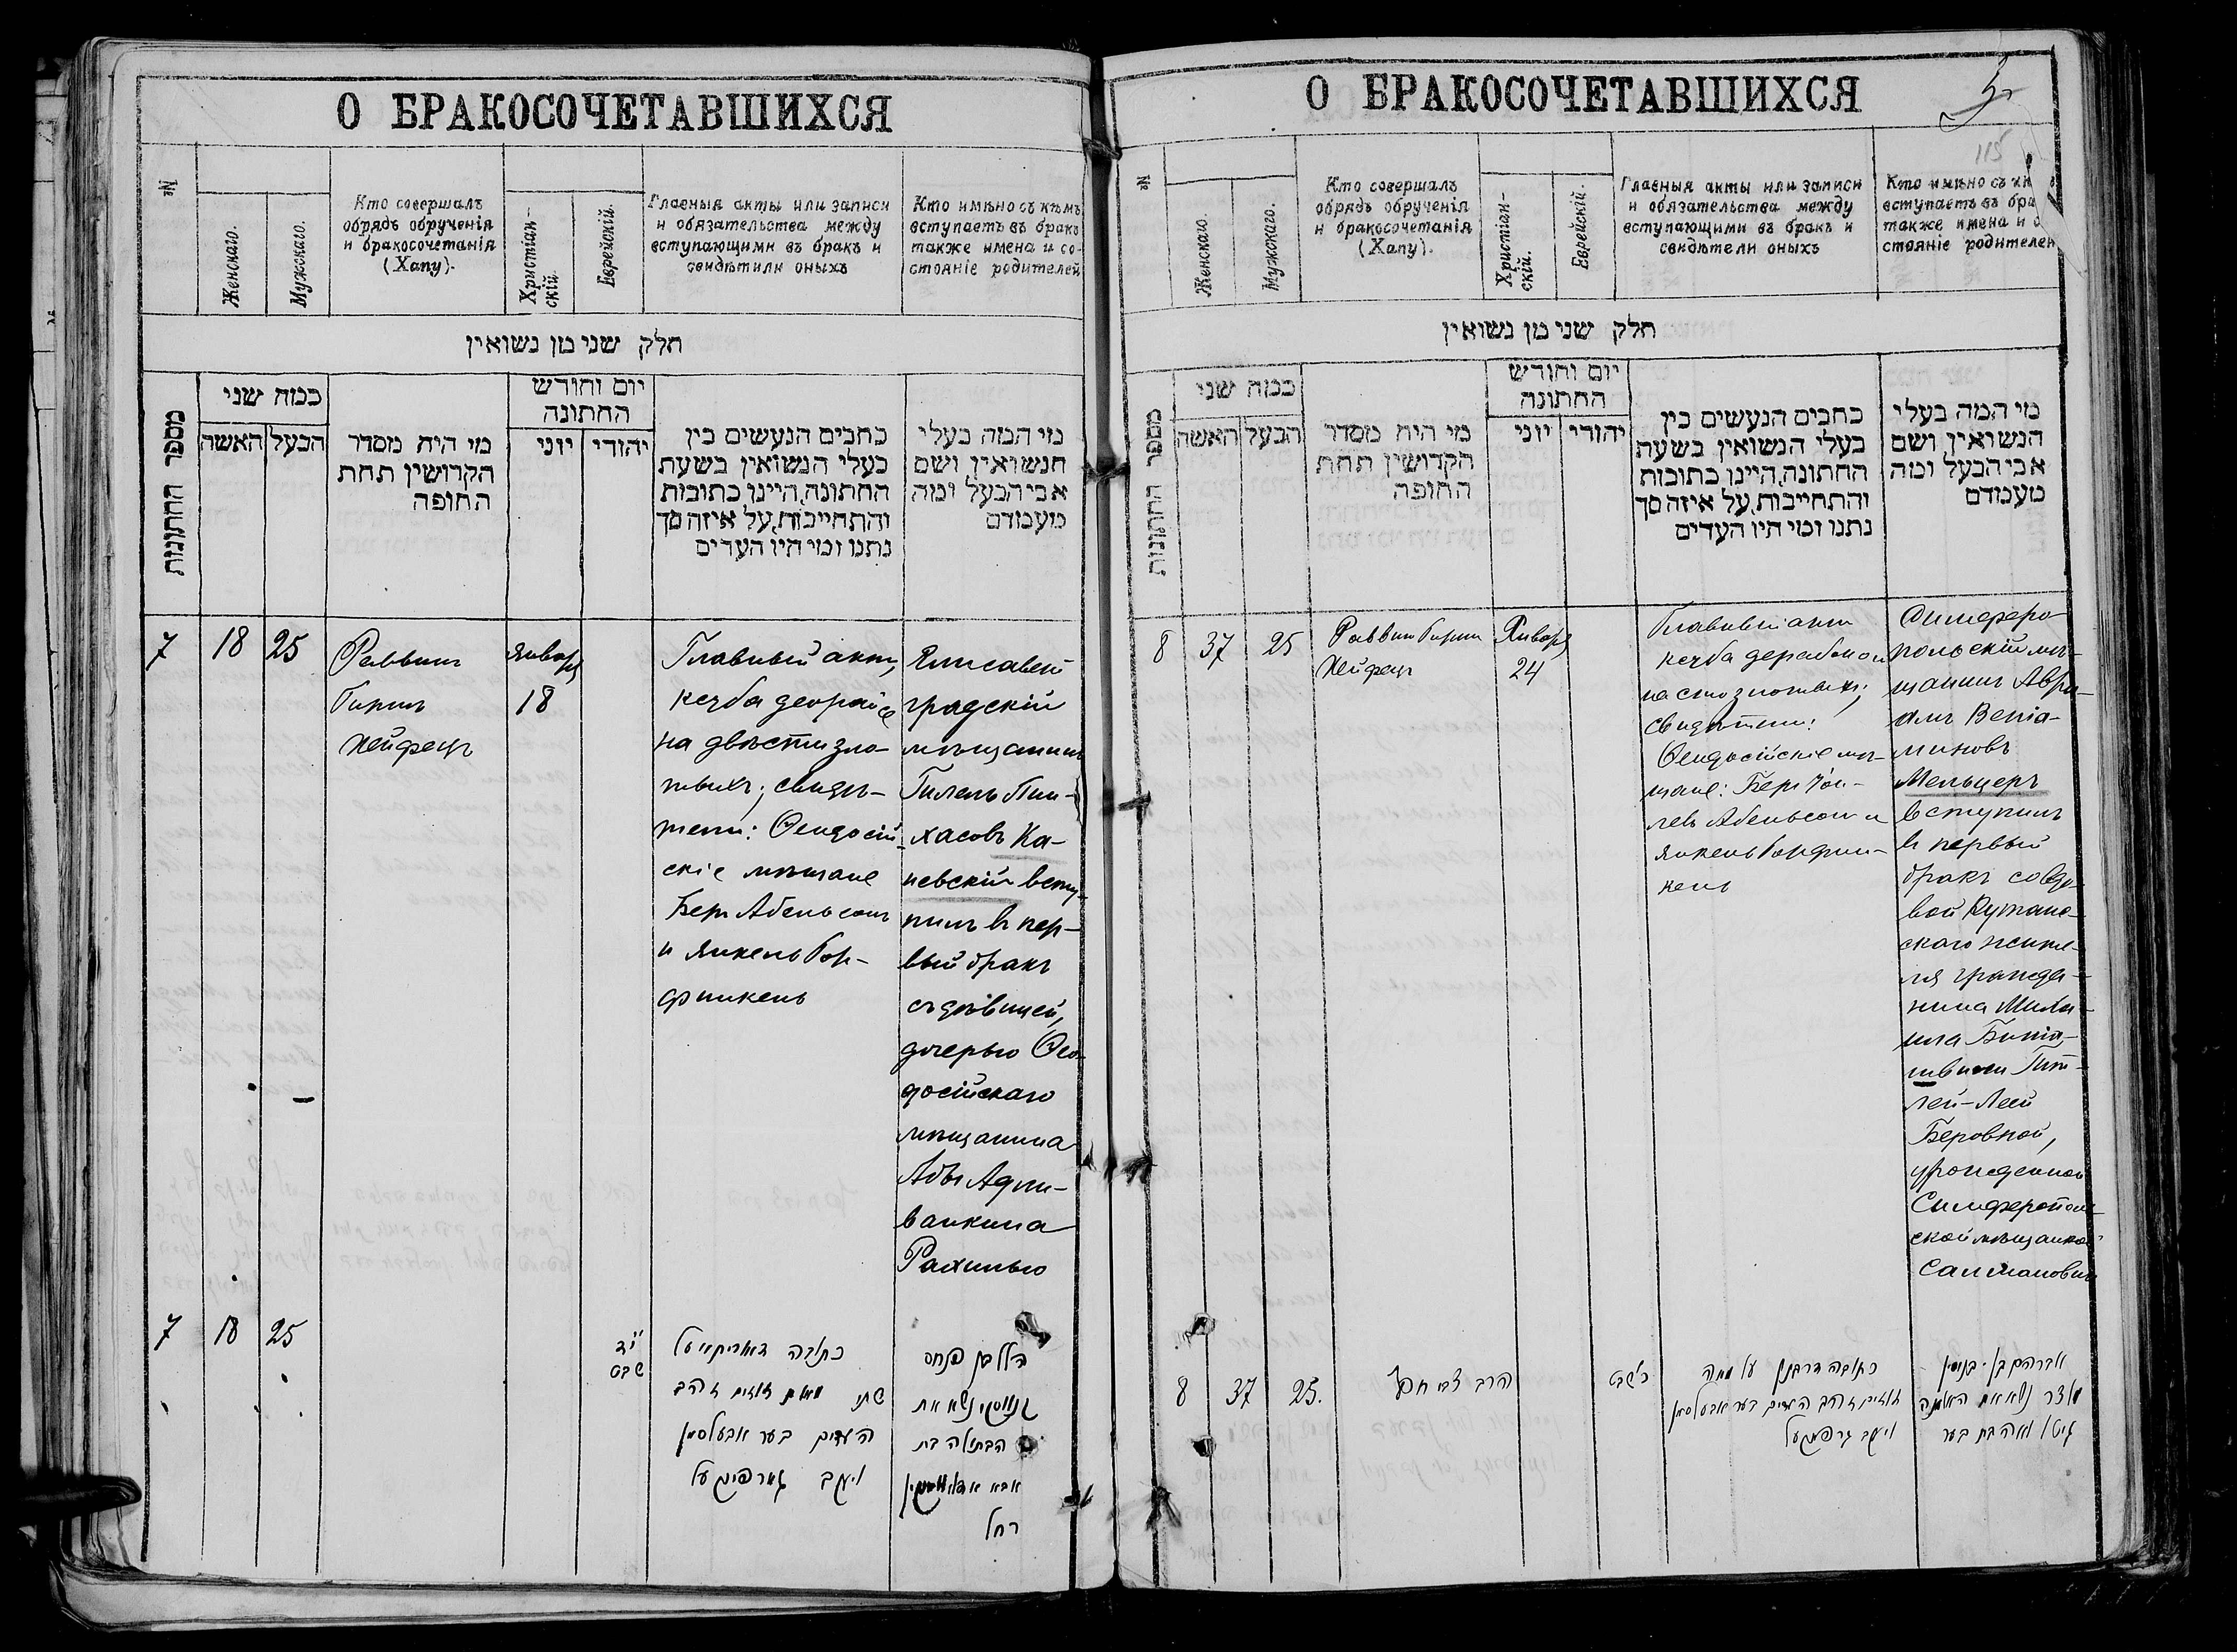 О БРАКОСОЧЕТАВШИХСЯ
№
Женскаго.
Мужскаго.
Кто совершалъ
обрядъ обрученія
и бракосочетанія
(Хапу).
Христіан-
скій.
Еврейскій.
Главныя акты или записи
и обязательства между
вступающими въ бракъ и
свидѣтили оныхъ
Кто имѣно съ кѣмъ
вступаетъ въ бракъ
также имена и со-
стояніе родителей
חלק שני מן נשואין
מספר החתונות
כמה שני
האשה
הבעל
מי היה מסדר
הקדושין תחת
החופה
יום וחודש
החתונה
יוני
יהודי
כתבים הנעשים בין
בעלי הנשואין בשעת
החתונה, היינו כתובות
והתחייבות, על איזה סך
נתנו ומי היו העדים
מי המה בעלי
הנשואין ושם
אבי הבעל ומה
מעמדם
7
18
25
Раввинъ
Гиршъ
Хейфецъ
Января
18
Главный актъ,
кечба деорайсе
на двѣсти зло-
тыхъ; свидѣ-
тели: Ѳеодосій-
скіе мѣщане
Беръ Абельсонъ
и Янкель Гор-
финкель
Елисавет-
градскій
мѣщанинъ
Гилель Пин-
хасовъ Ка-
невскій всту-
пилъ въ пер-
вый бракъ
съ дѣвицей,
дочерью Ѳео-
досійскаго
мѣщанина
Абы
Рахилью
7
18
25
י״ד
שבט
כתובה דאורייתא על
שתי מאות זוזים זהב
העדים בער אבעלסאן
ויעקב גארפינקעל
הלל בן פנחס
קנווסקי נשא את
הבתולה בת
אבא
רחל
О БРАКОСОЧЕТАВШИХСЯ
115
№
Женскаго.
Мужскаго.
Кто совершалъ
обрядъ обрученія
и бракосочетанія
(Хапу).
Христіан-
скій.
Еврейскій.
Главныя акты или записи
и обязательства между
вступающими въ бракъ и
свидѣтели оныхъ
Кто имѣно съ
вступаетъ въ бра
также имена и с
стояніе родителей
חלק שני מן נשואין
מספר החתונות
כמה שני
האשה
הבעל
מי היה מסדר
הקדושין תחת
החופה
יום וחודש
החתונה
יוני
יהודי
כתבים הנעשים בין
בעלי הנשואין בשעת
החתונה, היינו כתובות
והתחייבות, על איזה סך
נתנו ומי היו העדים
מי המה בעלי
הנשואין ושם
אבי הבעל ומה
מעמדם
8
37
25
Раввинъ Гиршъ
Хейфецъ
Января
24
Главный актъ
кечба
на сто злотыхъ;
свидѣтели:
Ѳеодосійскіе мѣ-
щане: Беръ
Абельсонъ и
Янкель Горфин-
кель
Симферо-
польскій мѣ-
щанинъ Авра-
амъ Веніа-
миновъ
Мельцеръ
вступилъ
въ первый
бракъ со вдо-
вой Кутаис-
скаго жите-
ля гражда-
нина
Гит-
лей-Леей
Беровной,
урожденной
Симферополь-
ской мѣщанкой
8
37
25.
הרב צבי חפץ
כ׳ שבט
כתובה דרבנן על מאה
זוזים זהב העדים בער אבעלסאן
ויעקב גרפינקעל
אברהם בן בנימין
מלצר נשא את האלמנה
גיטל לאה בת בער